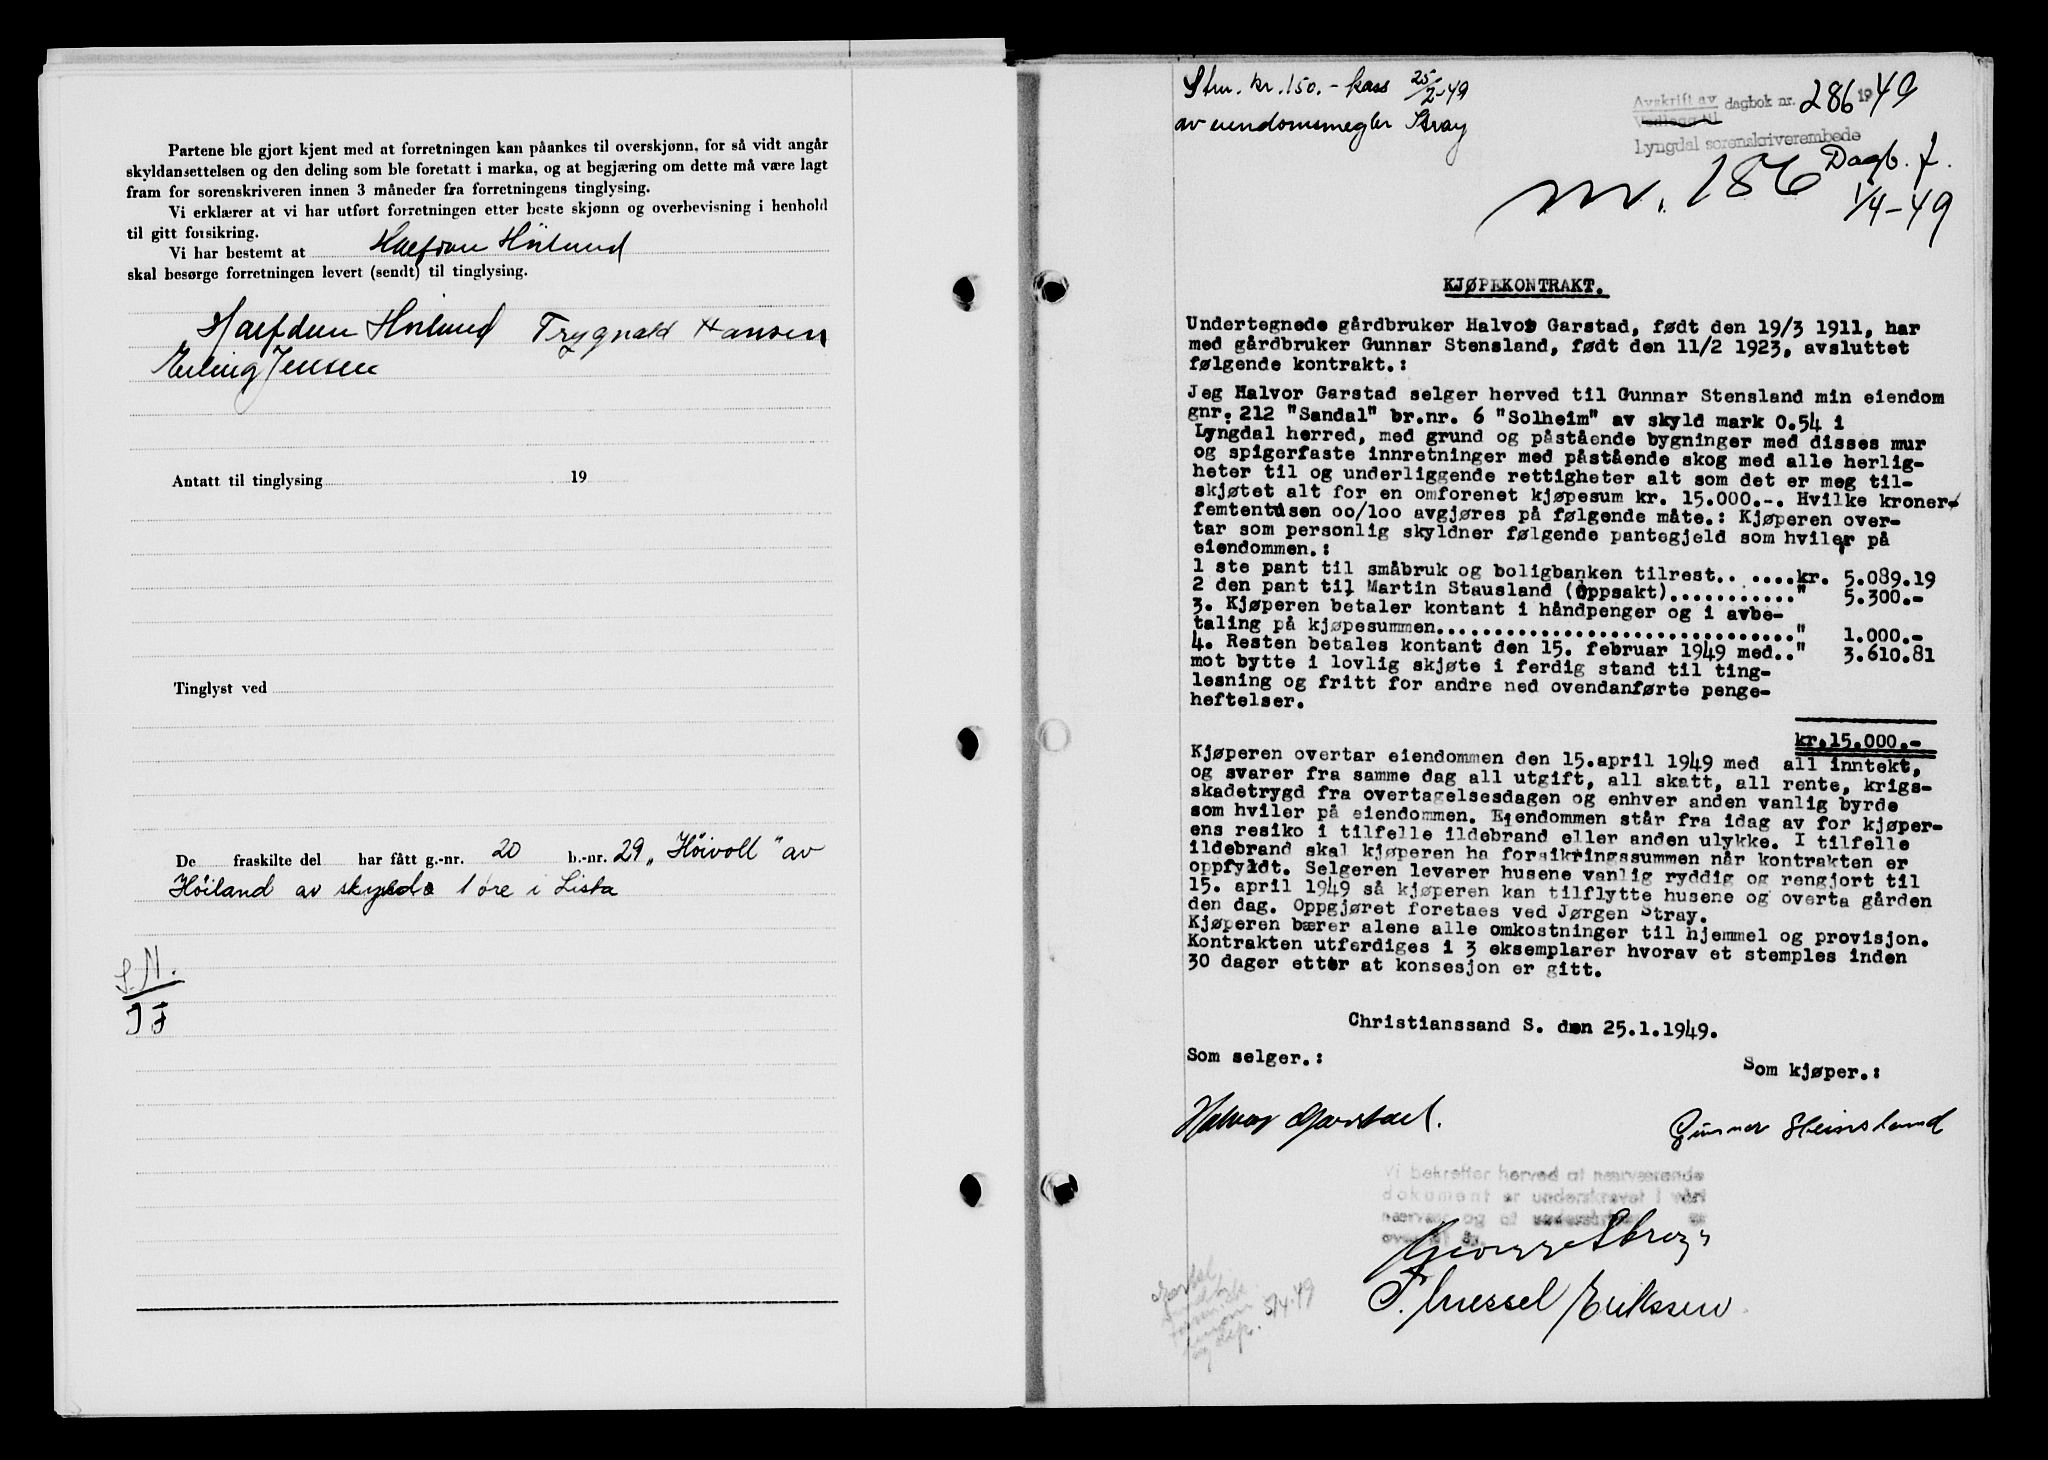 Partene ble gjort kjent med at forretningen kan påankes til overskjønn, for så vidt angår
skyldansettelsen og den deling som ble foretatt i marka, og at begjæring om dette må være lagt
fram for sorenskriveren innen 3 måneder fra forretningens tinglysing.
Vi erklærer at vi har utført forretningen etter beste skjønn og overbevisning i henhold
til gitt forsikring.
Vi har bestemt at Halfdan Höilund
skal besørge forretningen levert (sendt) til tinglysing.
Halfdan Höilund Trygvald Hansen
Erling Jensen
Antatt til tinglysing 19
Tinglyst ved
De fraskilte del har fått g.-nr. 20 b.-nr. 29 „Höivoll" av
Höiland av skyld 1 öre i Lista
S.N.
J F
Stm. kr. 150.- kass 25/2-49
av eiendomsmegler Stray
Avskrift av dagbok nr. 286 1949
Vedlegg til
Lyngdal sorenskriverembede
nr. 186 Dagb. f.
1/4-49
KJØPEKONTRAKT.
Undertegnede gårdbruker Halvor Garstad, født den 19/3 1911, har
med gårdbruker Gunnar Stensland, født den 11/2 1923, avsluttet
følgende kontrakt.:
Jeg Halvor Garstad selger herved til Gunnar Stensland min eiendom
gnr. 212 "Sandal" br.nr. 6 "Solheim" av skyld mark 0.54 i
Lyngdal herred, med grund og påstående bygninger med disses mur
og spigerfaste innretninger med påstående skog med alle herlig-
heter til og underliggende rettigheter alt som det er meg til-
skjøtet alt for en omforenet kjøpesum kr. 15.000.-. Hvilke kroner
femtentusen oo/1oo avgjøres på følgende måte.: Kjøperen over-
tar som personlig skyldner følgende pantegjeld som hviler på
eiendommen.:
1 ste pant til småbruk og boligbanken tilrest.. .....kr. 5.089.19
2 den pant til Martin Stausland (Oppsakt)..........." 5.300.-
3. Kjøperen betaler kontant i håndpenger og i avbe-
taling på kjøpesummen..............................." 1.000.-
4. Resten betales kontant den 15. februar 1949 med.." 3.610.81
mot bytte i lovlig skjøte i ferdig stand til ting-
lesning og fritt for andre ned ovendanførte penge-
heftelser.
kr.15.000.-
Kjøperen overtar eiendommen den 15.april 1949 med all inntekt,
og svarer fra samme dag all utgift, all skatt, all rente, krigs-
skadetrygd fra overtagelsesdagen og enhver anden vanlig byrde
som hviler på eiendommen. Eiendommen står fra idag av for kjøper-
ens resiko i tilfelle ildebrand eller anden ulykke. I tilfelle
ildebrand skal kjøperen ha forsikringssummen når kontrakten er
oppfyldt. Selgeren leverer husene vanlig ryddig og rengjort til
15. april 1949 så kjøperen kan tilflytte husene og overta gården
den dag. Oppgjøret foretaes ved Jørgen Stray.
Kjøperen bærer alene alle omkostninger til hjemmel og provisjon.
Kontrakten utferdiges i 3 eksemplarer hvorav et stemples inden
30 dager etter at konsesjon er gitt.
Christianssand S. den 25.1.1949.
Som selger.:
Som kjøper.:
Halvor Garstad.
Gunnar Stensland
Vi bekrefter herved at nærværende
dokument er underskrevet i vårt
nærvær og at
Stray
Eriksen
5/4-49